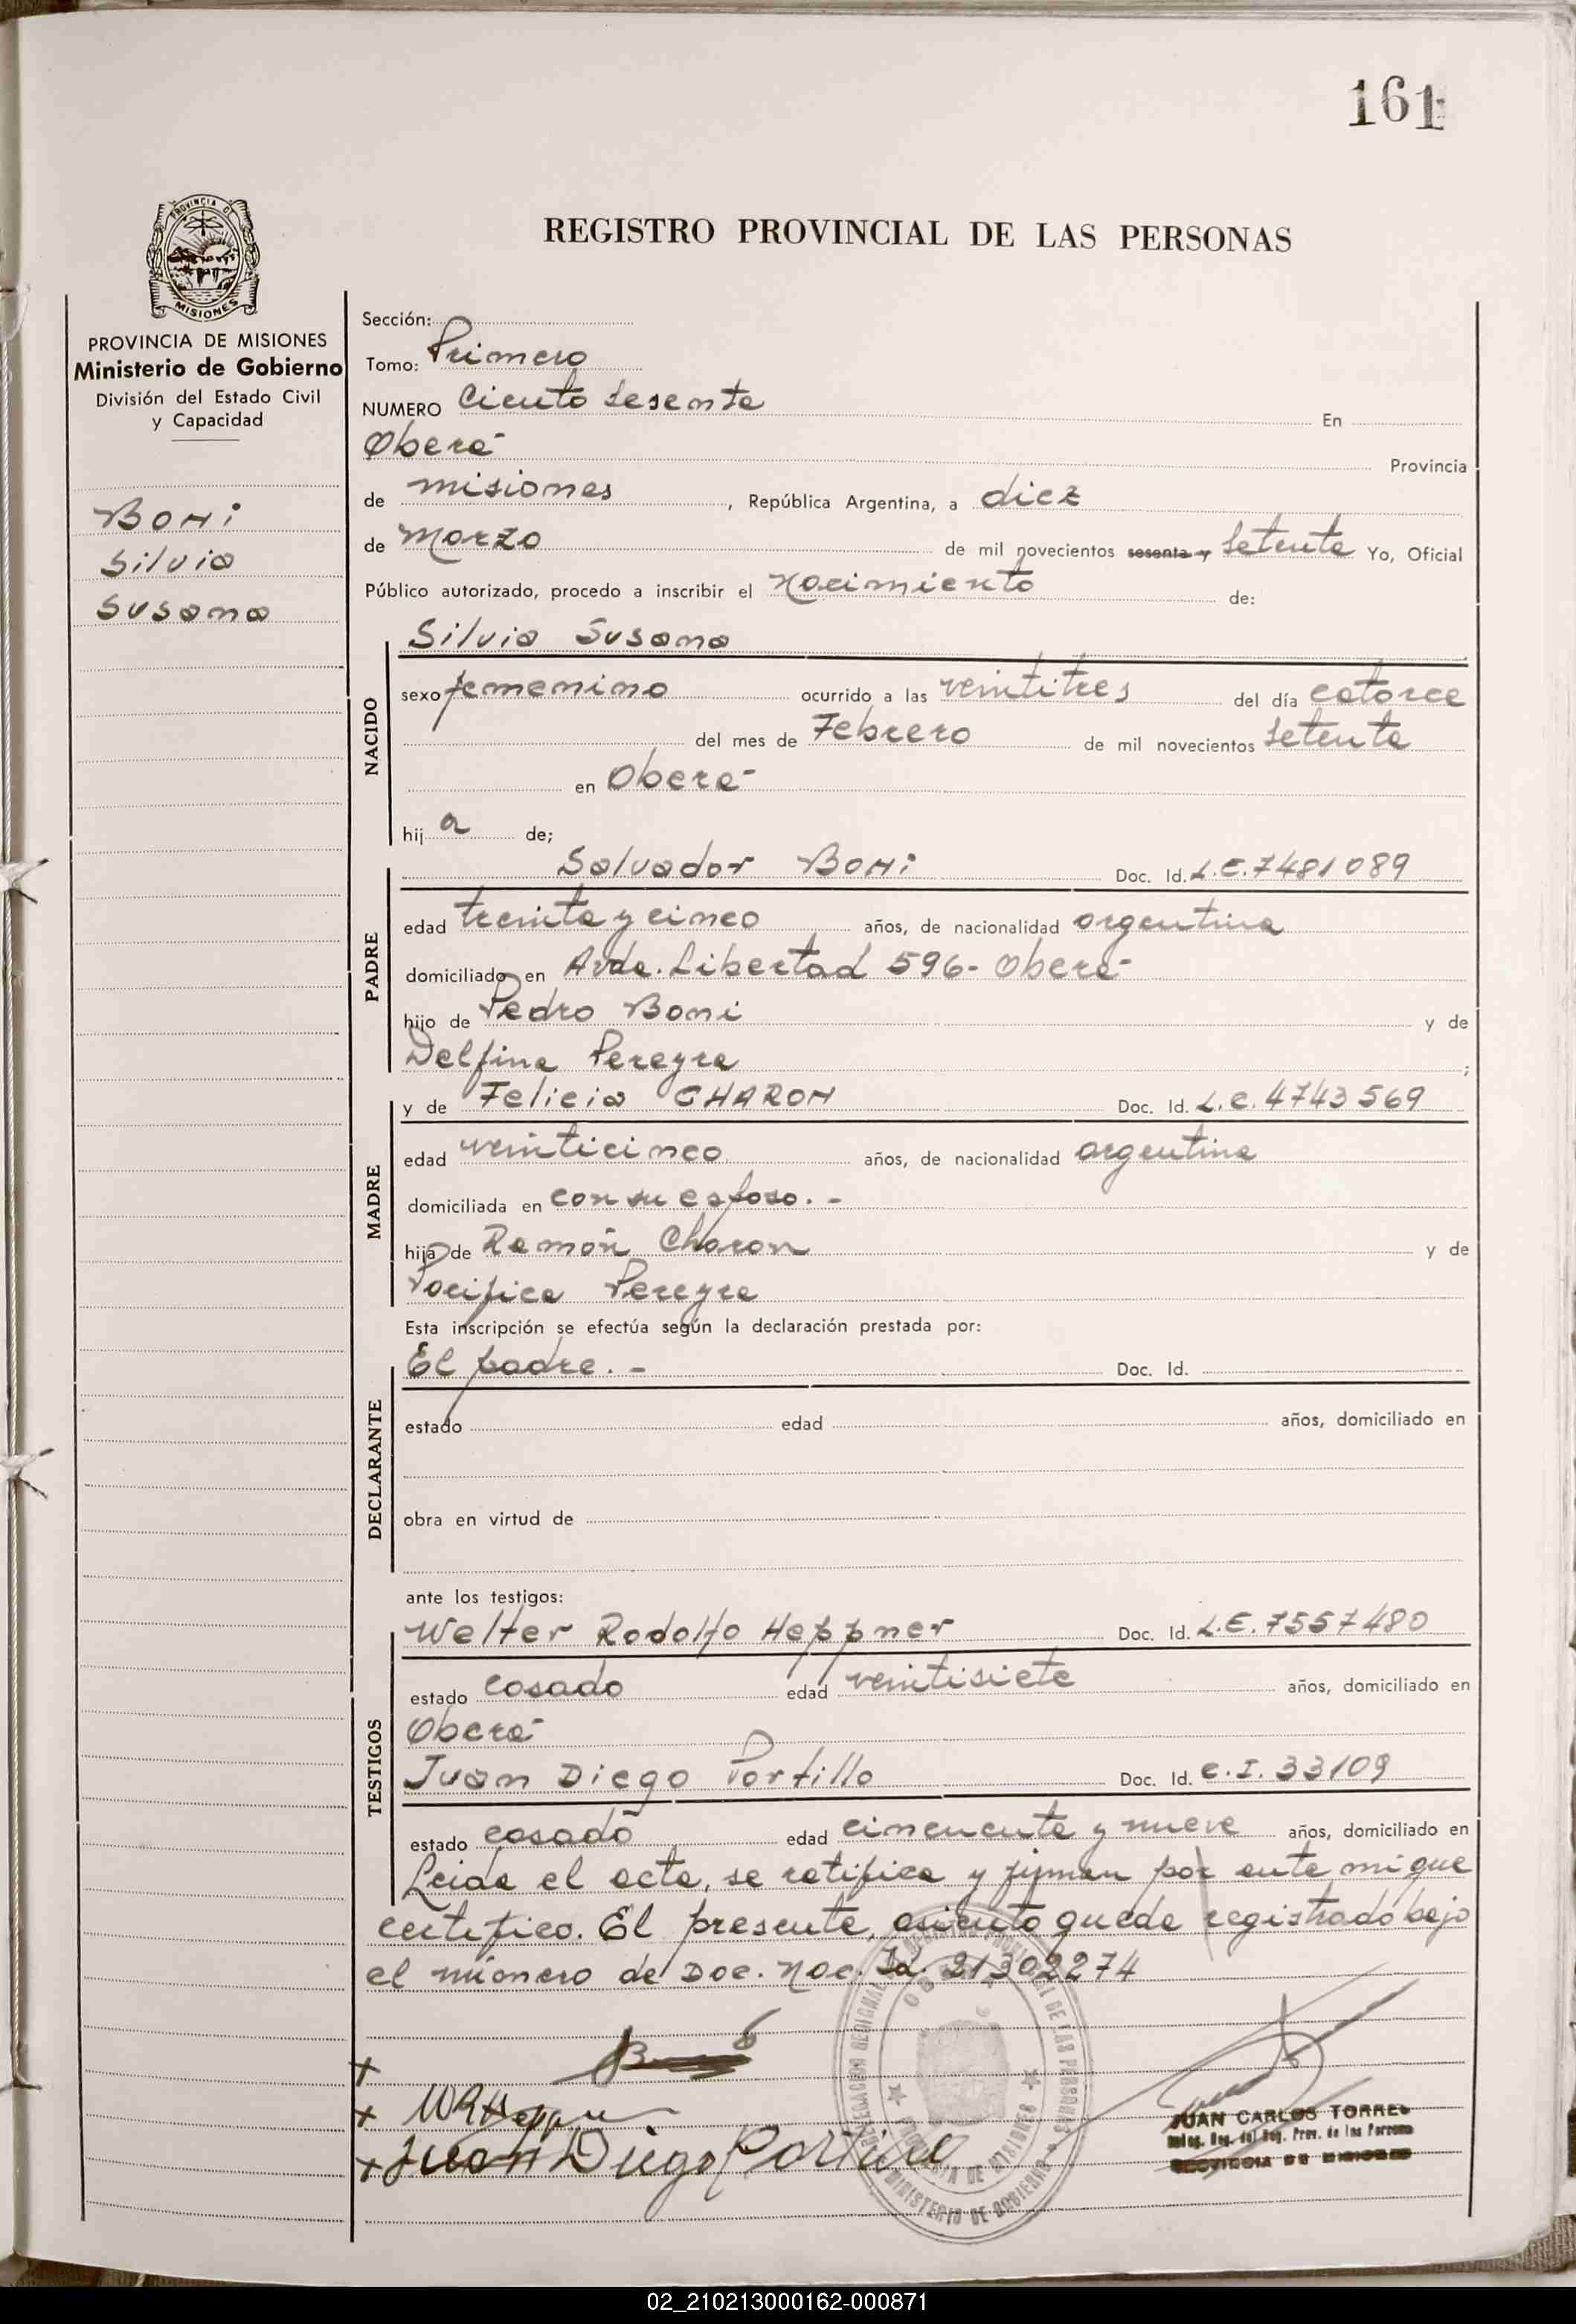 161
PROVINCIA DE
MISIONES
REGISTRO PROVINCIAL DE LAS PERSONAS
PROVINCIA DE MISIONES
Ministerio de Gobierno
División del Estado Civil
y Capacidad
BONI
Silvia
Susana
Sección:
Tomo: Primero
NUMERO Ciento Sesenta En
Oberá Provincia
de misiones, República Argentina, a diez
de Marzo de mil novecientos sesenta y Setenta Yo, Oficial
Público autorizado, procedo a inscribir el Nacimiento de:
Silvia Susana
NACIDO
sexo femenino ocurrido a las veintitres del día catorce
del mes de Febrero de mil novecientos Setenta
en Oberá
hij a de;
Salvador BONI Doc. Id. L.E. 7481089
PADRE
edad treinta y cinco años, de nacionalidad argentina
domiciliado en Avda. Libertad 596- Oberá
hijo de Pedro Boni y de
Delfina Pereyra ;
y de Felicia CHARON Doc. Id. L.C. 4743569
MADRE
edad veinticinco años, de nacionalidad argentina
domiciliada en con su esposo. -
hija de Ramón Charon y de
Pacifica Pereyra
Esta inscripción se efectúa según la declaración prestada por:
El padre. - Doc. Id.
DECLARANTE
estado edad años, domiciliado en
obra en virtud de
ante los testigos:
Walter Rodolfo Heppner Doc. Id. L.E. 7557480
TESTIGOS
estado casado edad veintisiete años, domiciliado en
Oberá
Juan Diego Portillo Doc. Id. C.I. 33109
estado casado edad cincuenta y nueve años, domiciliado en
Leida el acta, se ratifica y firman por ante mi que
certifico. El presente asiento queda registrado bajo
el número de Doc. Nac. Id. 21302274
WRHeppner
Juan Diego Portillo
JUAN CARLOS TORRES
PROVINCIA DE MISIONES
MINISTERIO DE GOBIERNO
02_210213000162-000871